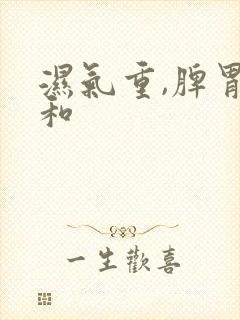 濕氣重,脾胃
和
一生歡喜